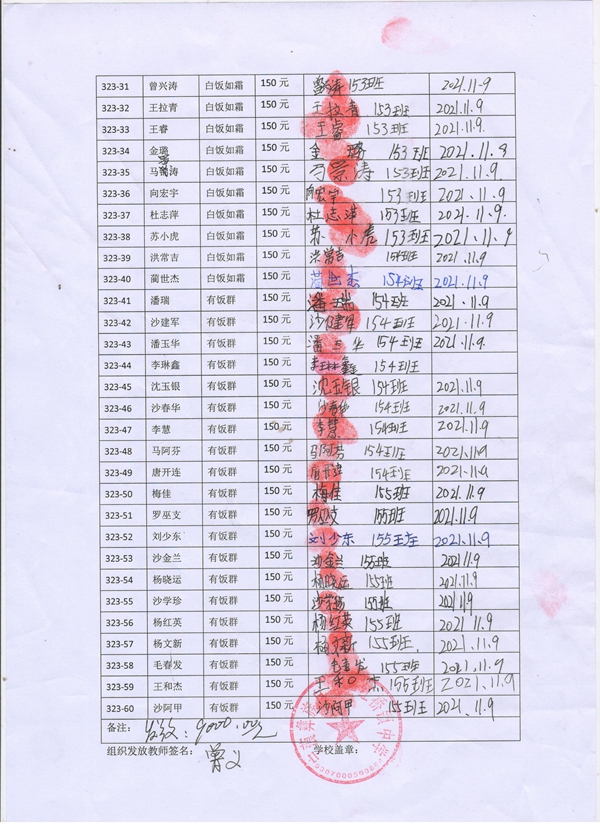 323-31 曾兴涛 白饭如霜 150 元 曾兴涛 153班 2021.11.9
323-32 王拉青 白饭如霜 150 元 王拉青 153班 2021.11.9
323-33 王睿 白饭如霜 150 元 王睿 153班 2021.11.9
323-34 金璐 白饭如霜 150 元 金璐 153班 2021.11.9
323-35 马涛 白饭如霜 150 元 涛 153班 2021.11.9
323-36 向宏宇 白饭如霜 150 元 向宏宇 153班 2021.11.9
323-37 杜志萍 白饭如霜 150 元 杜志萍 153班 2021.11.9
323-38 苏小虎 白饭如霜 150 元 苏小虎 153班 2021.11.9
323-39 洪常吉 白饭如霜 150 元 洪常吉 154班 2021.11.9
323-40 蔺世杰 白饭如霜 150 元 世杰 154班 2021.11.9
323-41 潘瑞 有饭群 150 元 潘瑞 154班 2021.11.9
323-42 沙建军 有饭群 150 元 沙建军 154班 2021.11.9
323-43 潘玉华 有饭群 150 元 潘玉华 154班 2021.11.9
323-44 李琳鑫 有饭群 150 元 李琳鑫 154班
323-45 沈玉银 有饭群 150 元 沈玉银 154班 2021.11.9
323-46 沙春华 有饭群 150 元 沙春华 154班 2021.11.9
323-47 李慧 有饭群 150 元 李慧 154班 2021.11.9
323-48 马阿芬 有饭群 150 元 马阿芬 154班 2021.11.9
323-49 唐开连 有饭群 150 元 唐开连 154班 2021.11.9
323-50 梅佳 有饭群 150 元 梅佳 155班 2021.11.9
323-51 罗巫支 有饭群 150 元 罗巫支 155班 2021.11.9
323-52 刘少东 有饭群 150 元 刘少东 155班 2021.11.9
323-53 沙金兰 有饭群 150 元 沙金兰 155班 2021.11.9
323-54 杨晓运 有饭群 150 元 杨晓运 155班 2021.11.9
323-55 沙学珍 有饭群 150 元 沙学珍 155班 2021.11.9
323-56 杨红英 有饭群 150 元 杨红英 155班 2021.11.9
323-57 杨文新 有饭群 150 元 杨文新 155班 2021.11.9
323-58 毛春发 有饭群 150 元 毛春发 155班 2021.11.9
323-59 王和杰 有饭群 150 元 王和杰 155班 2021.11.9
323-60 沙阿甲 有饭群 150 元 沙阿甲 155班 2021.11.9
备注: 发放: 9000.00元
组织发放教师签名: 学校盖章: